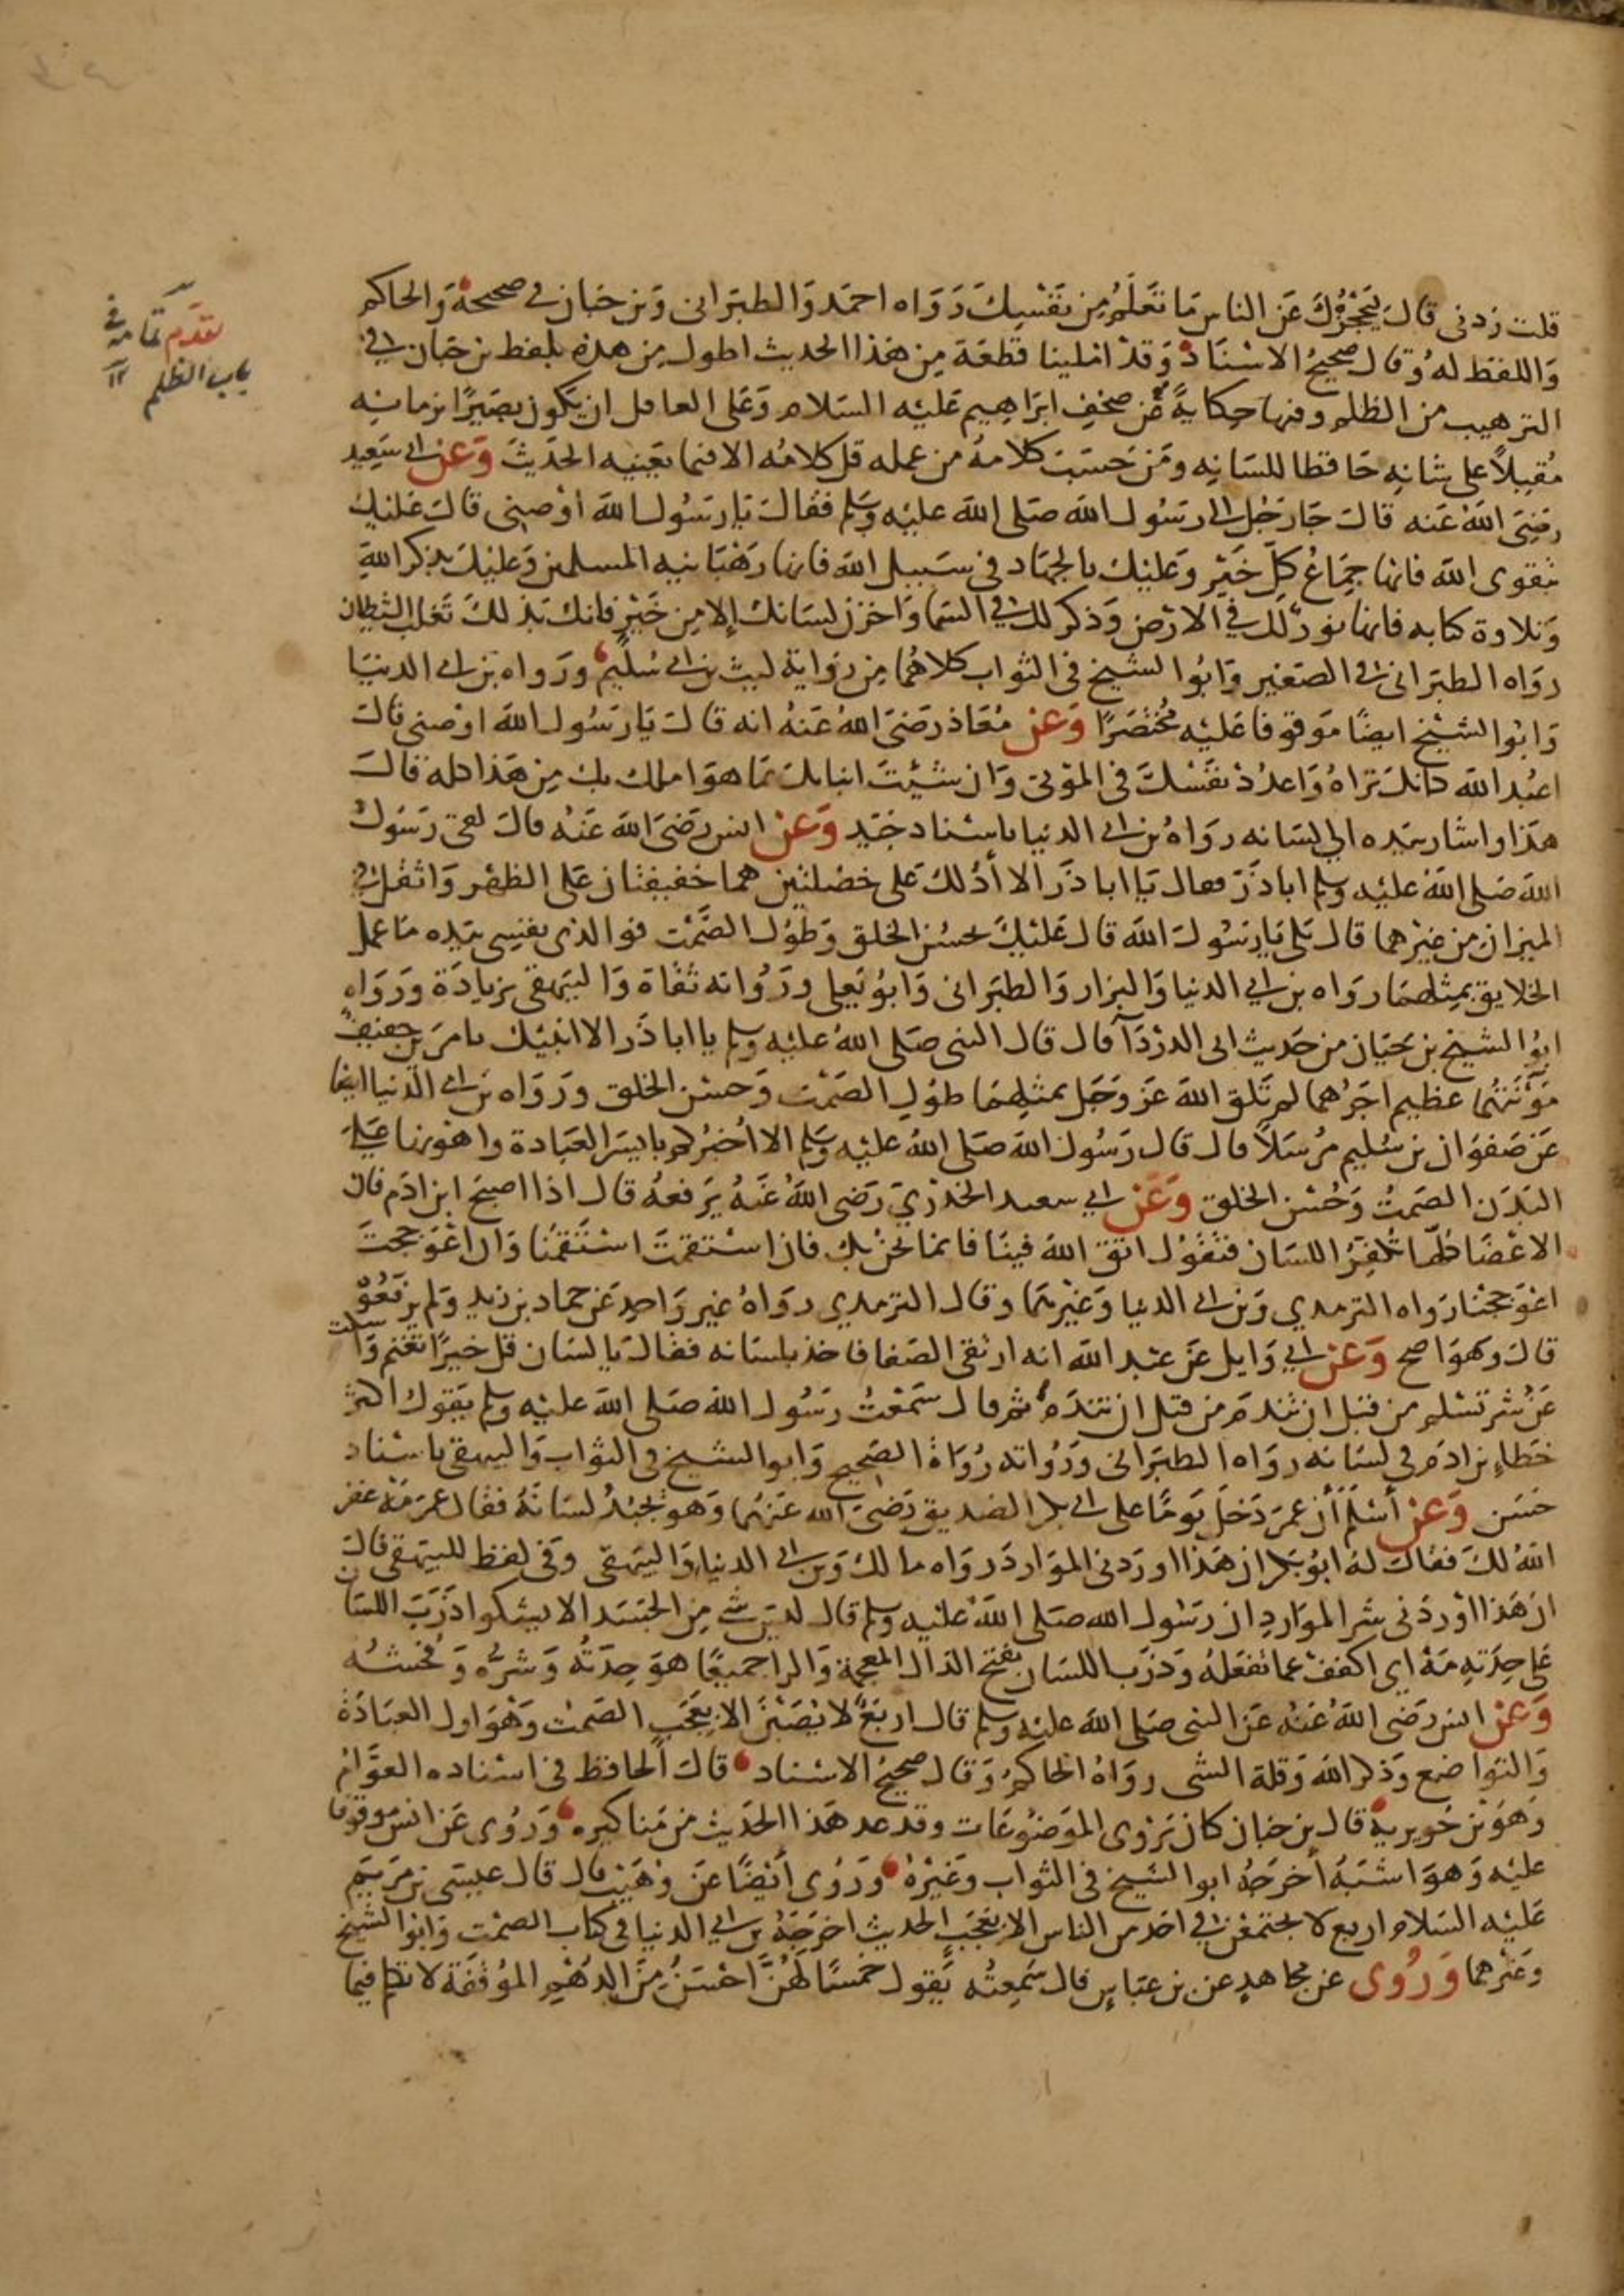 قلت زدنى قال ليحجزك عن الناس ما تعلم من نفسك رواه احمد والطبرانى وبن حبان فى صحيحه والحاكم
واللفظ له وقال صحيح الاسناد وقد املينا قطعة من هذا الحديث اطول من هذه بلفظ بن حبان فى
الترهيب من الظلم وفيها حكاية عن صحف ابراهيم عليه السلام وعلى العاقل ان يكون بصيرا بزمانه
مقبلا على شانه حافظا للسانه ومن حسب كلامه من عمله قل كلامه الا فيما يعنيه الحديث وعن ابى سعيد
رضى الله عنه قال جا رجل الى رسول الله صلى الله عليه وسلم فقال يا رسول الله اوصنى قال عليك
بتقوى الله فانها جماع كل خير وعليك بالجهاد فى سبيل الله فانها رهبانيه المسلمين وعليك بذكر الله
وتلاوة كتابه فانها نور لك فى الارض وذكر لك فى السما واخزن لسانك إلا من خير فانك بذلك تغلب الشيطان
رواه الطبرانى فى الصغير وابوا الشيخ فى الثواب كلاهما من رواية ليث بن ابى سليم ورواه بن ابى الدنيا
وابوا الشيخ ايضا موقوفا عليه مختصرا وعن معاذ رضى الله عنه انه قال يا رسول الله اوصنى قال
اعبد الله كانك تراه واعدد نفسك فى الموتى وان شئت انباتك بما هو املك بك من هذا كله قال
هذا واشار بيده الى لسانه رواه بن ابى الدنيا باسناد جيد وعن انس رضى الله عنه قال لقى رسول
الله صلى الله عليه وسلم ابا ذر فقال يا ابا ذر الا أدلك على خصلتين هما خفيفتان على الظهر واثقل فى
الميزان من غيرهما قال بلى يا رسول الله قال عليك بحسن الخلق وطول الصمت فو الذى نفسى بيده ما عمل
الخلايق بمثلهما رواه بن ابى الدنيا والبزار والطبرانى وابو يعلى ورواته ثقاة والبيهقى بزيادة ورواه
ابوا الشيخ بن حيان من حديث ابى الدردآ قال قال النبى صلى الله عليه وسلم يا ابا ذر الا انبئك بامرين خفيف
مؤنتهما عظيم اجرهما لم تلق الله عز وجل بمثلهما طول الصمت وحسن الخلق ورواه بن ابى الدنيا ايضا
عن صفوان بن سليم مرسلا قال قال رسول الله صلى الله عليه وسلم الا اخبركم بايسر العبادة واهونها على
البدن الصمت وحسن الخلق وعن ابى سعيد الخدري رضى الله عنه يرفعه قال اذا اصبح ابن ادم فان
الاعضا كلها تكفر اللسان فتقول اتق الله فينا فانما نحن بك فان استقمت استقمنا وان اعوججت
اعوججنا رواه الترمدي وبن ابى الدنيا وغيرهما وقال الترمدي رواه غير واحد عن حماد بن زيد ولم يرفعوه
قال وهو اصح وعن ابي وايل عن عبد الله انه ارتقى الصفا فاخذ بلسانه فقال يا لسان قل خيرا تغنم واسكت
عن شر تسلم من قبل ان تندم من قبل ان تندم ثم قال سمعت رسول الله صلى الله عليه وسلم يقول اكثر
خطاء بن ادم فى لسانه رواه الطبرانى ورواته رواة الصحيح وابوا الشيخ فى الثواب والبيهقى باسناد
حسن وعن أسلم أن عمر دخل يوما على ابى بكر الصديق رضى الله عنهما وهو يجبذ لسانه فقال عمر مه غفر
الله لك فقال له ابو بكر ان هذا اوردنى الموارد رواه مالك وبن ابى الدنيا والبيهقى وفى لفظ للبيهقى قال
ان هذا اوردنى شر الموارد ان رسول الله صلى الله عليه وسلم قال ليس شى من الجسد الا يشكوا ذرب اللسان
على حدته مه اى اكفف عما تفعله وذرب اللسان بفتح الذال المعجمة والرا جميعا هو حدته وشره وفحشه
وعن انس رضى الله عنه عن النبى صلى الله عليه وسلم قال اربع لا يصبن الا بعجب الصمت وهو اول العبادة
والتواضع وذكر الله وقلة الشى رواه الحاكم وقال صحيح الاسناد قال الحافظ فى اسناده العوام
وهو بن جويرية قال بن حبان كان يروى الموضوعات وقد عد هذا الحديث من مناكيره وروى عن انس موقوفا
عليه وهو اشبه أخرجه ابوا الشيخ فى الثواب وغيره وروى أيضا عن وهيب قال قال عيسى بن مريم
عليه السلام اربع لا يجتمعن فى احد من الناس الا بعجب الحديث اخرجه بن ابي الدنيا فى كتاب الصمت وابوا الشيخ
وغيرهما وروى عن مجاهد عن بن عباس قال سمعته يقول خمسا لهن احسن من الدهم الموقفة لا تكلم فيما
تقدم تمامه فى
باب الظلم ١٢